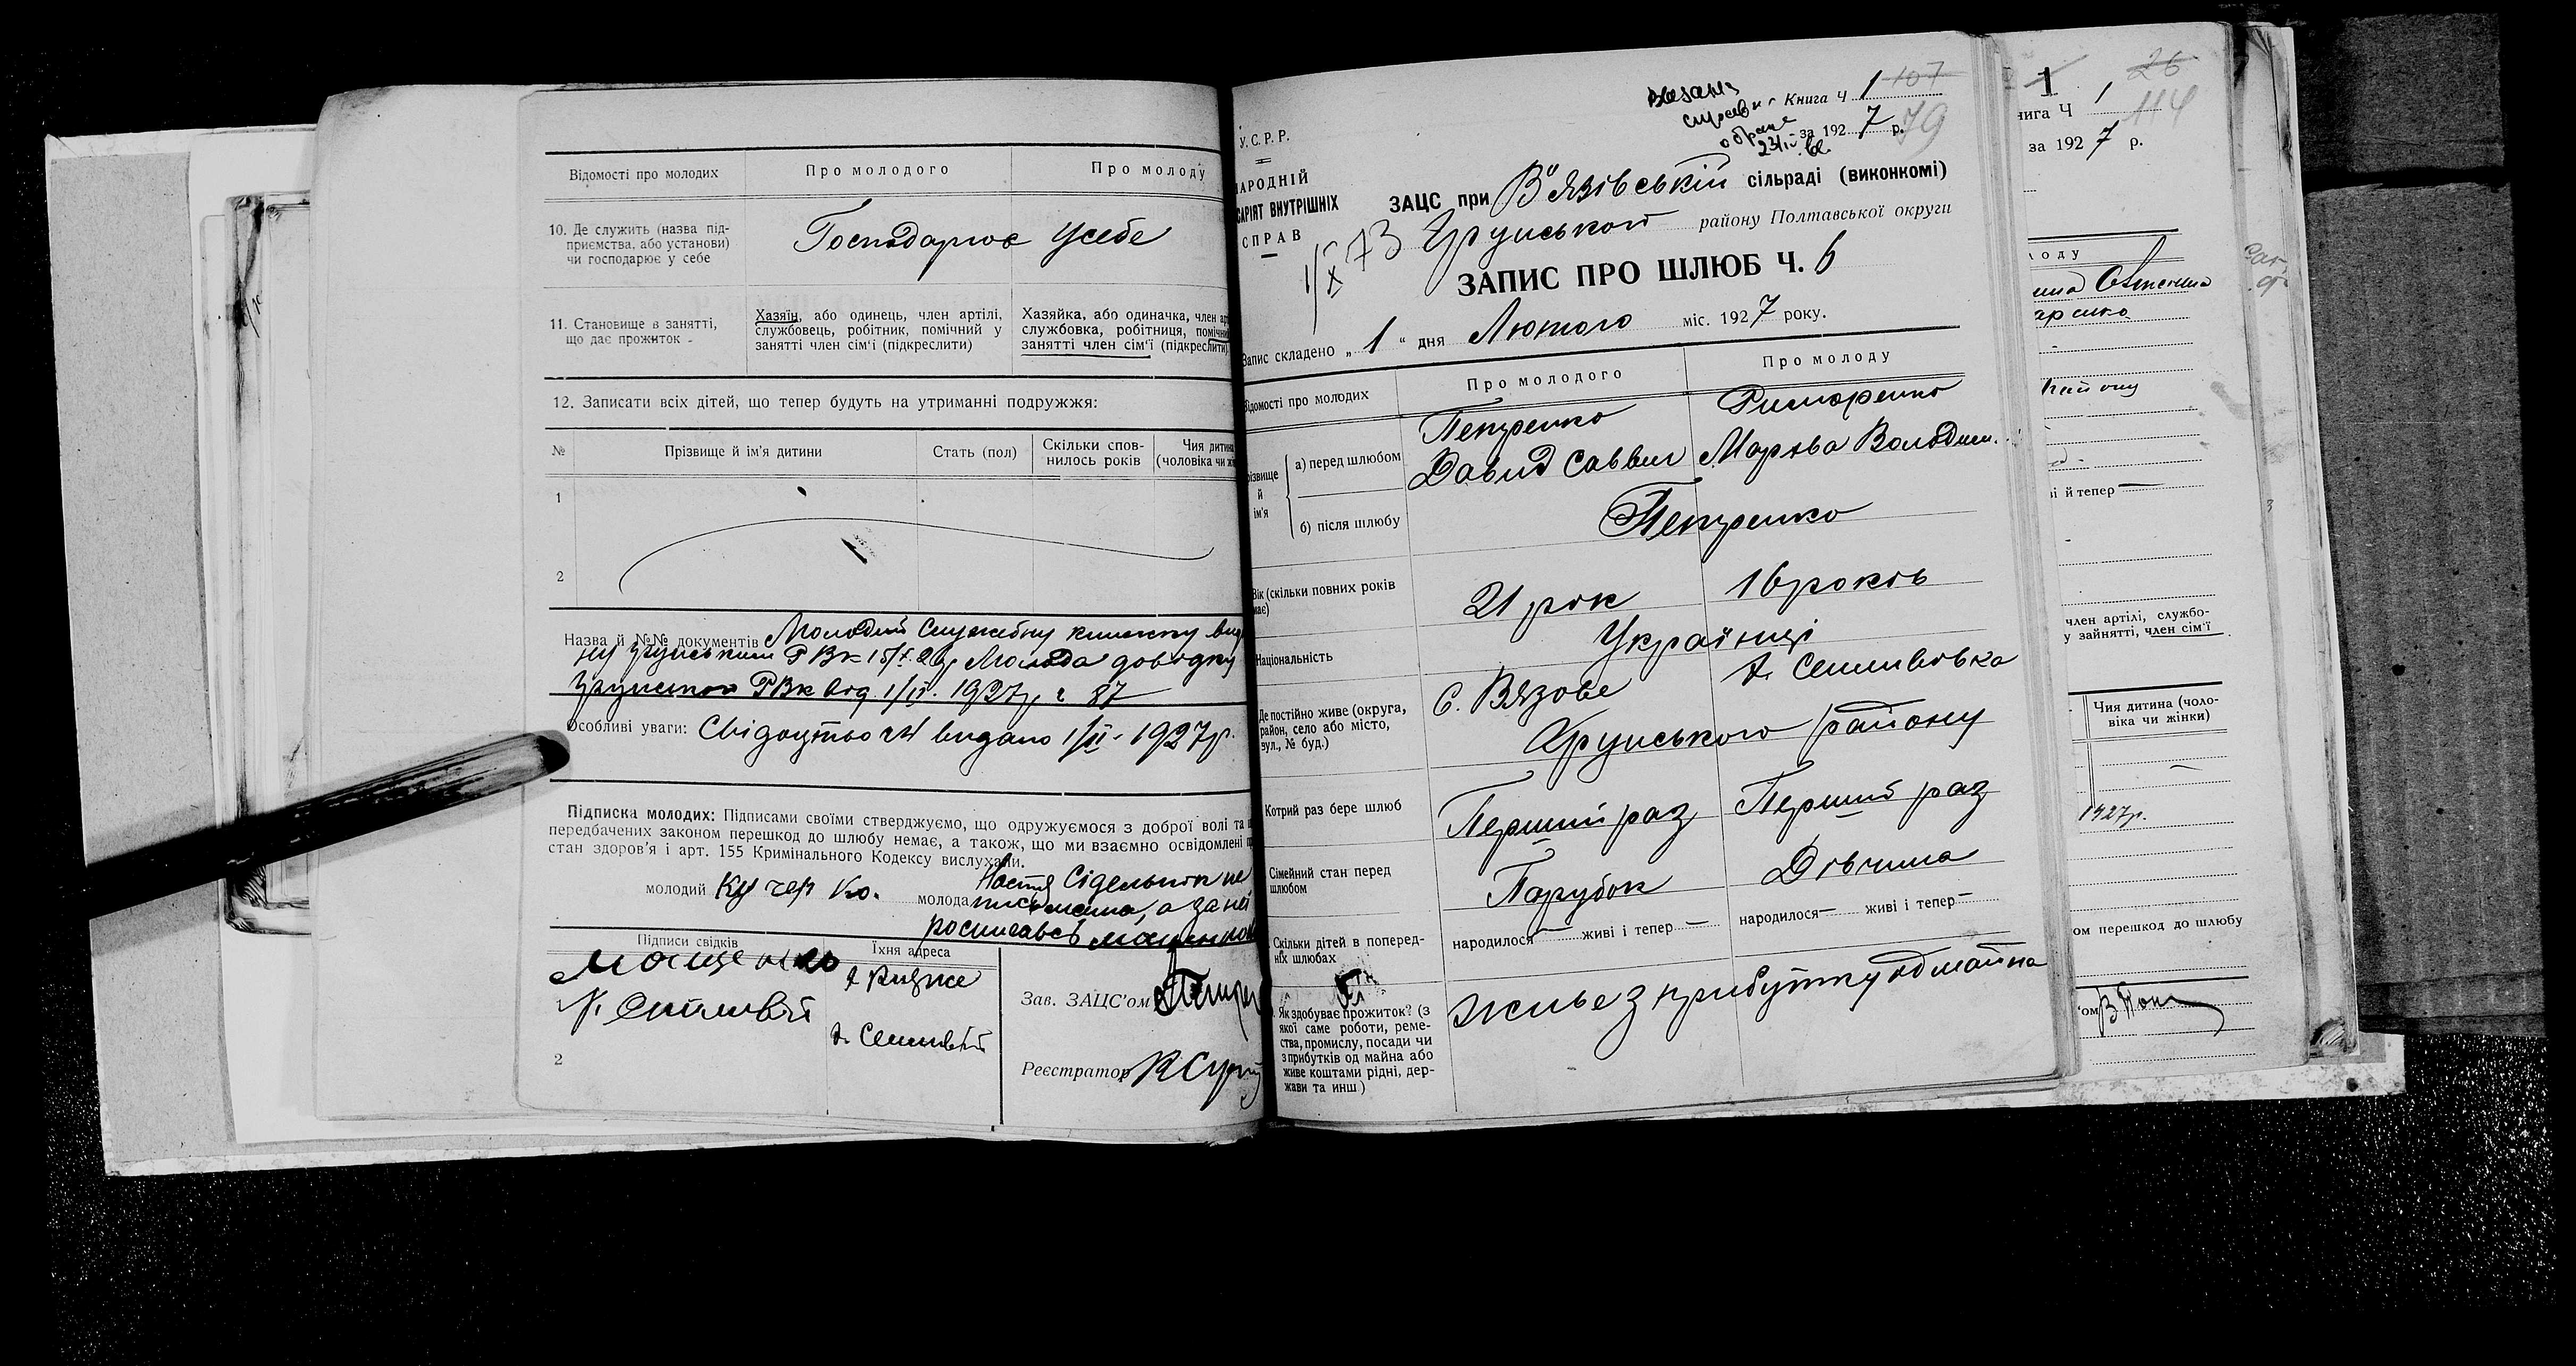 Відомості про молодих
Про молодого
Про молоду
10. Де служить (назва під-
приємства, або установи)
чи господарює у себе
Господарює усебе
11. Становище в занятті,
що дає прожиток -
Хазяїн, або одинець, член артілі,
службовець, робітник, помічний у
занятті член сім'ї (підкреслити)
Хазяйка, або одиначка, член ар
службовка, робітниця, помічни
занятті член сім'ї (підкреслити)
12. Записати всіх дітей, що тепер будуть на утриманні подружжя:
№
Прізвище й ім'я дитини
Стать (пол)
Скільки спов-
нилось років
Чия дитина
(чоловіка чи жі
1
2
Назва й №№ документів Молодий Служебну книжку вид
РВК 15/X 26р Молода довідку
РВК від 1/II. 1927р ч 87
Особливі уваги: Свідоцтво видано 1/II - 1927р.
Підписка молодих: Підписами своїми стверджуємо, що одружуємося з доброї волі та п
передбачених законом перешкод до шлюбу немає, а також, що ми взаємно освідомлені п
стан здоров'я і арт. 155 Кримінального Кодексу вислухали.
молодий Кучер Ко.
молода Настя Сідельнік не
письмена, а за неї
росписавсь
Підписи свідків
Їхня адреса
1
2
Зав. ЗАЦС'ом
Реєстратор
У.С.Р.Р.
НАРОДНІЙ
САРІЯТ ВНУТРІШНІХ
СПРАВ
Книга Ч 1 107
за 1927 р. 79
ЗАЦС при В'язівській сільраді (виконкомі)
Грунського району Полтавської округи
ЗАПИС ПРО ШЛЮБ Ч. 6
Запис складено „ 1 " дня Лютого міс. 1927 року.
Відомості про молодих
Про молодого
Про молоду
різвище
й
ім'я
а) перед шлюбом
Петренко
Давид Саввич
Марьва Володим.
б) після шлюбу
Петренко
Вік (скільки повних років
має)
21 рік
16 років
Національність
Українці
Де постійно живе (округа,
район, село або місто,
вул., № буд.)
С. Вязове
х. Семинівка
Грунського району
Котрий раз бере шлюб
Перший раз
Перший раз
Сімейний стан перед
шлюбом
Парубок
Дівчина
Скільки дітей в поперед-
ніх шлюбах
народилося — живі і тепер —
народилося — живі і тепер —
Як здобуває прожиток? (з
якої саме роботи, реме-
ства, промислу, посади чи
з прибутків од майна або
живе коштами рідні, дер-
жави та инш)
живе з прибутку од майна
1
26
нига Ч 1 114
за 1927 р.
лоду
району
і й тепер —
член артілі, службо-
у зайнятті, член сім'ї
Чия дитина (чоло-
віка чи жінки)
1927р.
ом перешкод до шлюбу
'ом